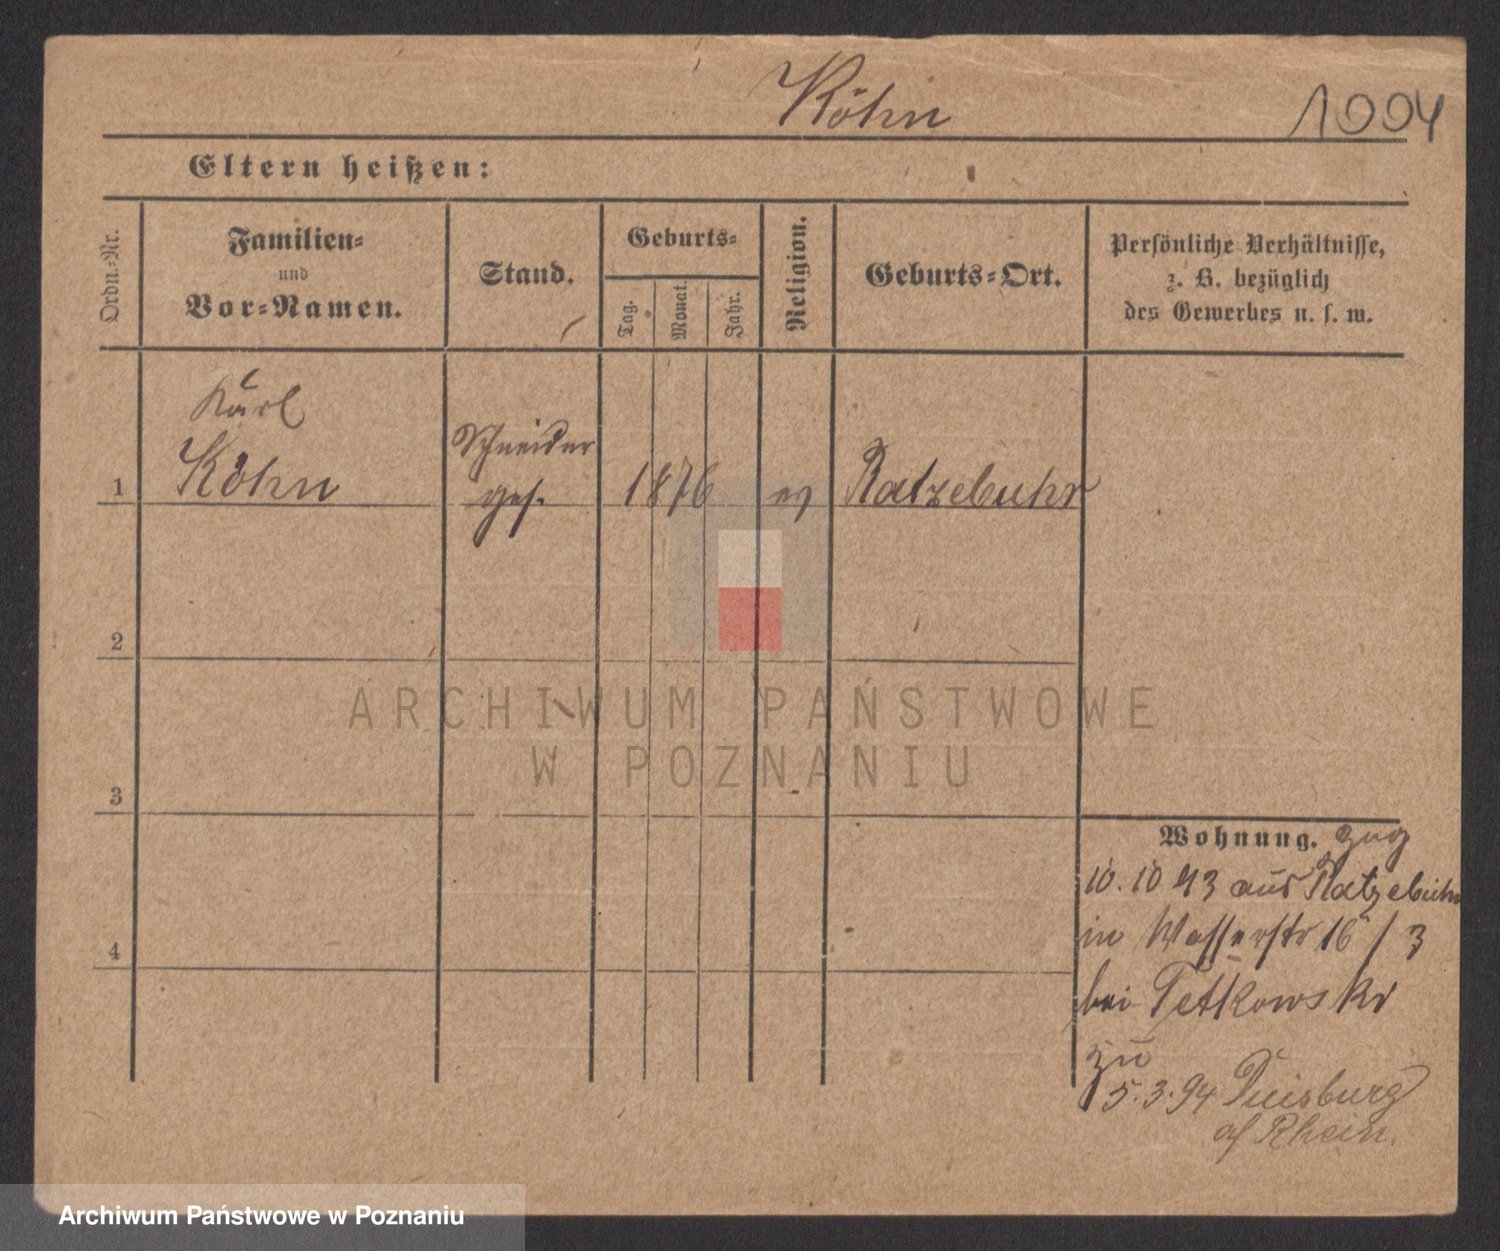 Köhn
1004
Eltern heißen:
Ordn.-Nr.
Familien-
und
Vor-Namen.
Stand.
Geburts-
Tag.
Monat.
Jahr.
Religion.
Geburts-Ort.
Persönliche Verhältnisse,
z. B. bezüglich
des Gewerbes u. s. w.
Karl
Köhn
Schneider
ges.
1
1876
ev
Ratzebuhr
2
3
4
ARCHIWUM PAŃSTWOWE
W POZNANIU
Wohnung. zug
10.10 93 aus Ratzebuhr
in Wasserstr 16 / 3
bei Tetkowski
zu
5.3.94 Duisburg
a/ Rhein.
Archiwum Państwowe w Poznaniu